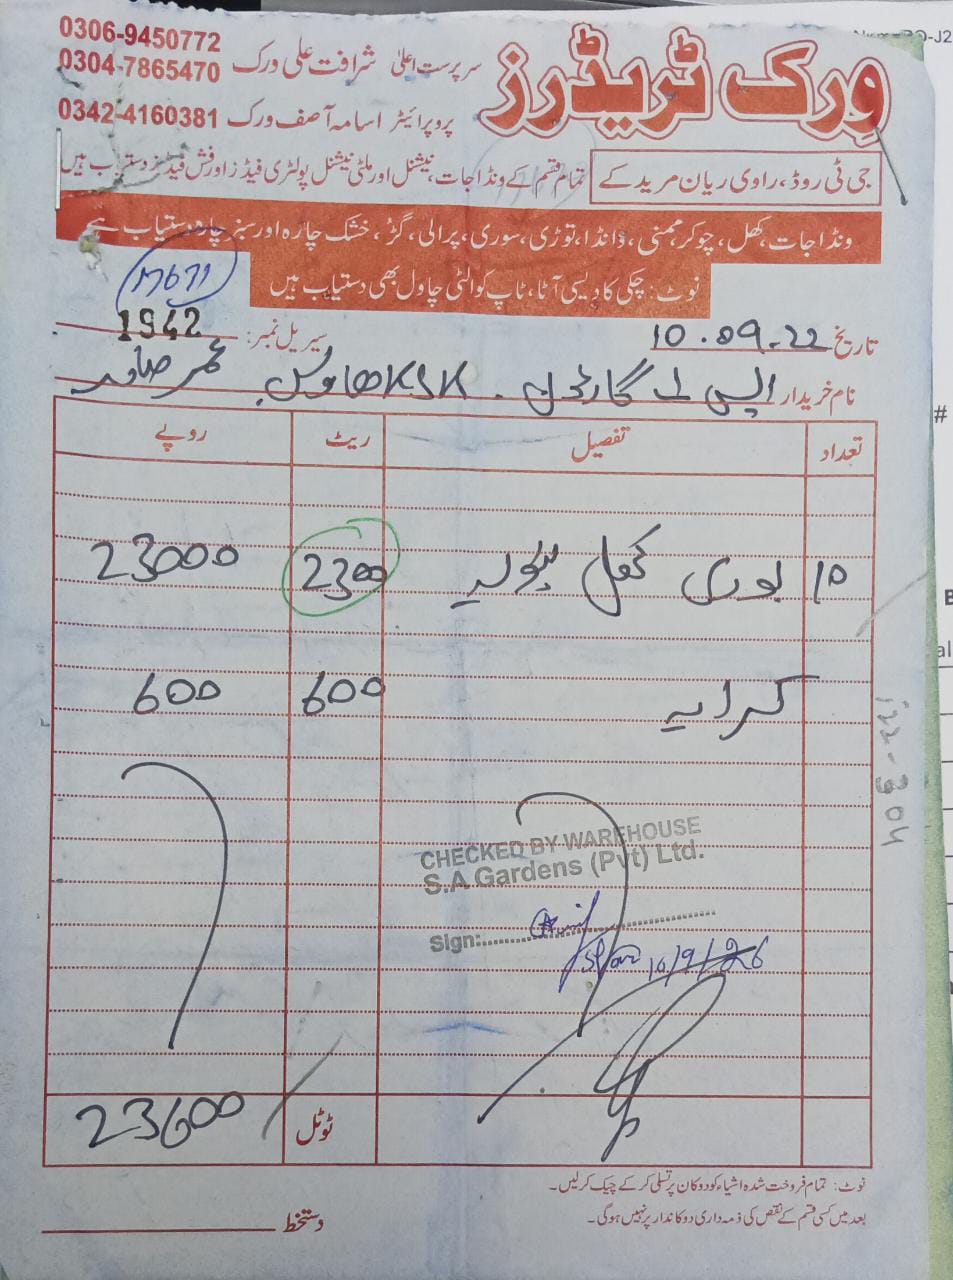 ورک ٹریڈرز
سرپرست اعلیٰ شرافت علی ورک 0306-9450772
0304-7865470
پروپرائیٹر اسامہ آصف ورک 0342-4160381
جی ٹی روڈ، راوی ریان مریدکے
تمام قسم کے ونڈا جات، نیشنل اور ملٹی نیشنل پولٹری فیڈز اور فش فیڈز دستیاب ہیں
ونڈا جات، کھل، چوکر، ممنی، ڈانڈا، توڑی، سوری، پرالی، گڑ، خشک چارہ اور سبز چارہ دستیاب ہے
نوٹ: چکی کا دیسی آٹا، ٹاپ کوالٹی چاول بھی دستیاب ہیں
17671
تاریخ 10.09.22 سیریل نمبر: 1942
نام خریدار ایس اے گارڈن . KSK ھاوس عمر صاحب
تعداد تفصیل ریٹ روپے
10 بوری کھل بنولہ 2300 23000
کرایہ 600 600
CHECKED BY WAREHOUSE
S.A Gardens (Pvt) Ltd.
Sign:
10/9/
ٹوٹل 23600
نوٹ: تمام فروخت شدہ اشیاء کو دوکان پر تسلی کر کے چیک کر لیں۔
بعد میں کسی قسم کے نقص کی ذمہ داری دوکاندار پر نہیں ہوگی۔
دستخط